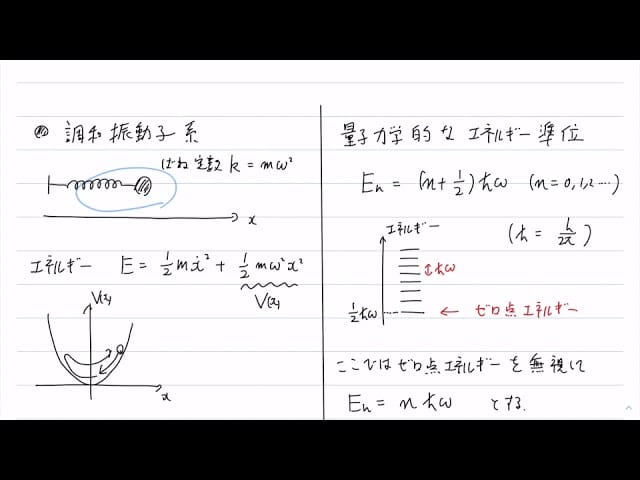 調和振動子系
ばね定数 k = mω²
x
エネルギー E = 1/2 mẋ² + 1/2 mω²x²
V(x)
V(x)
x
量子力学的なエネルギー準位
Eₙ = (n+1/2)ħω (n=0,1,2....)
(ħ = h/2π)
エネルギー
ħω
1/2ħω ← ゼロ点エネルギー
ここではゼロ点エネルギーを無視して
Eₙ = nħω とする.